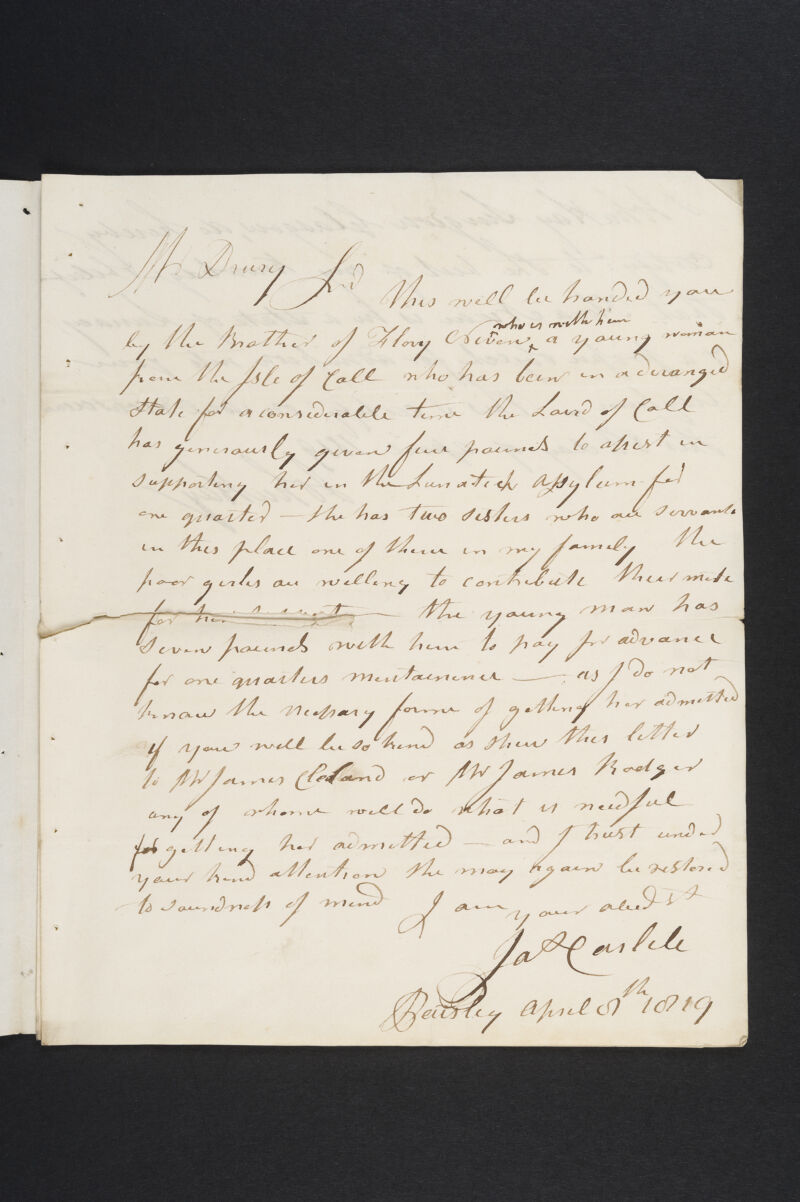 Mr Drury Sir
This will be handed you
by the Brother of Flory Niven who is with him a young woman
from the Isle of Call who has been in a deranged
State for a considerable time the Laird of Call
has generously given five pounds to assist in
supporting her in the Lunatick assylum for
one quarter – She has two sisters who are servants
in this place one of them in my family the
poor girles are willing to contribute their mite
for her support – the young man has
seven pounds with him to pay for advance
for one quarters mentainence – as I do not
know the nessary forme of getting her admitted
if you will be so kind as shew this letter
to Mr James Cleland or Mr James Rodger
any of whome will do what is needful
for getting her admitted – and I trust under
your kind attention She may again be restored
to soundness of mind I am your obedt St
Jas Carlile
Paisley April 8th 1819